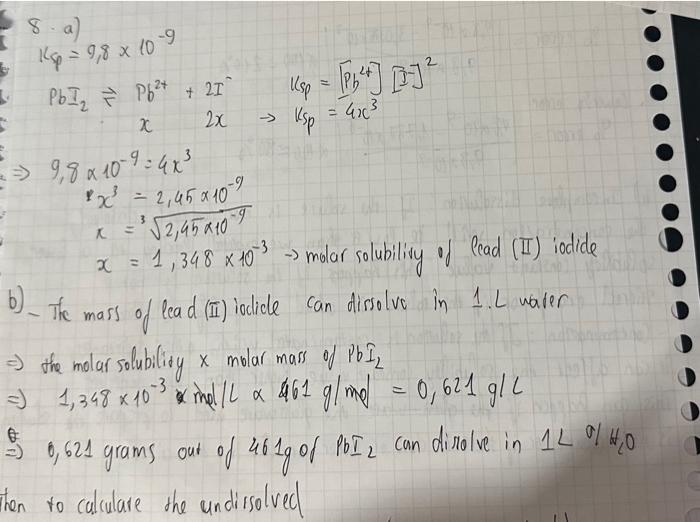 8. a)
Ksp = 9,8 x 10⁻⁹
PbI₂ ⇌ Pb²⁺ + 2I⁻ Ksp = [Pb²⁺] [I⁻]²
x 2x → Ksp = 4x³
⇒ 9,8 x 10⁻⁹ = 4x³
x³ = 2,45 x 10⁻⁹
x = ³√2,45 x 10⁻⁹
x = 1,348 x 10⁻³ → molar solubility of lead (II) iodide
b) - The mass of lead (II) iodide can dissolve in 1.L water
⇒ the molar solubility x molar mass of PbI₂
⇒ 1,348 x 10⁻³ mol/L x 461 g/mol = 0,621 g/L
⇒ 0,621 grams out of 461g of PbI₂ can dissolve in 1L of H₂O
Then to calculate the undissolved